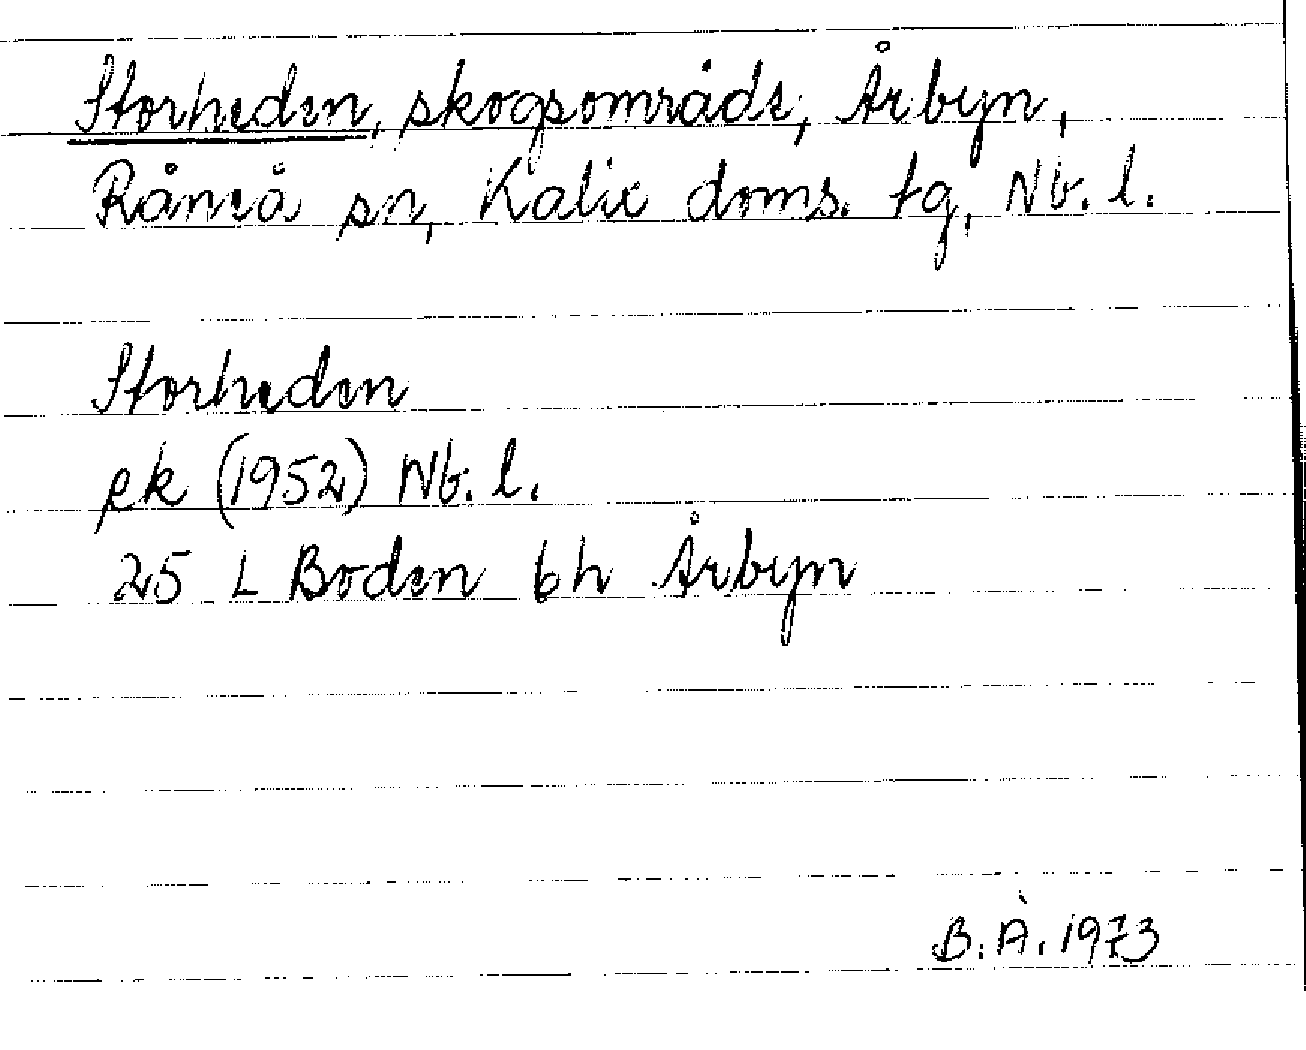 Storheden, skogsområde, Årbyn,
Råneå sn, Kalix doms. tg, Nb. l.
Storheden
ek (1952) Nb. l.
25 L Boden 6h Årbyn
B. Å. 1973